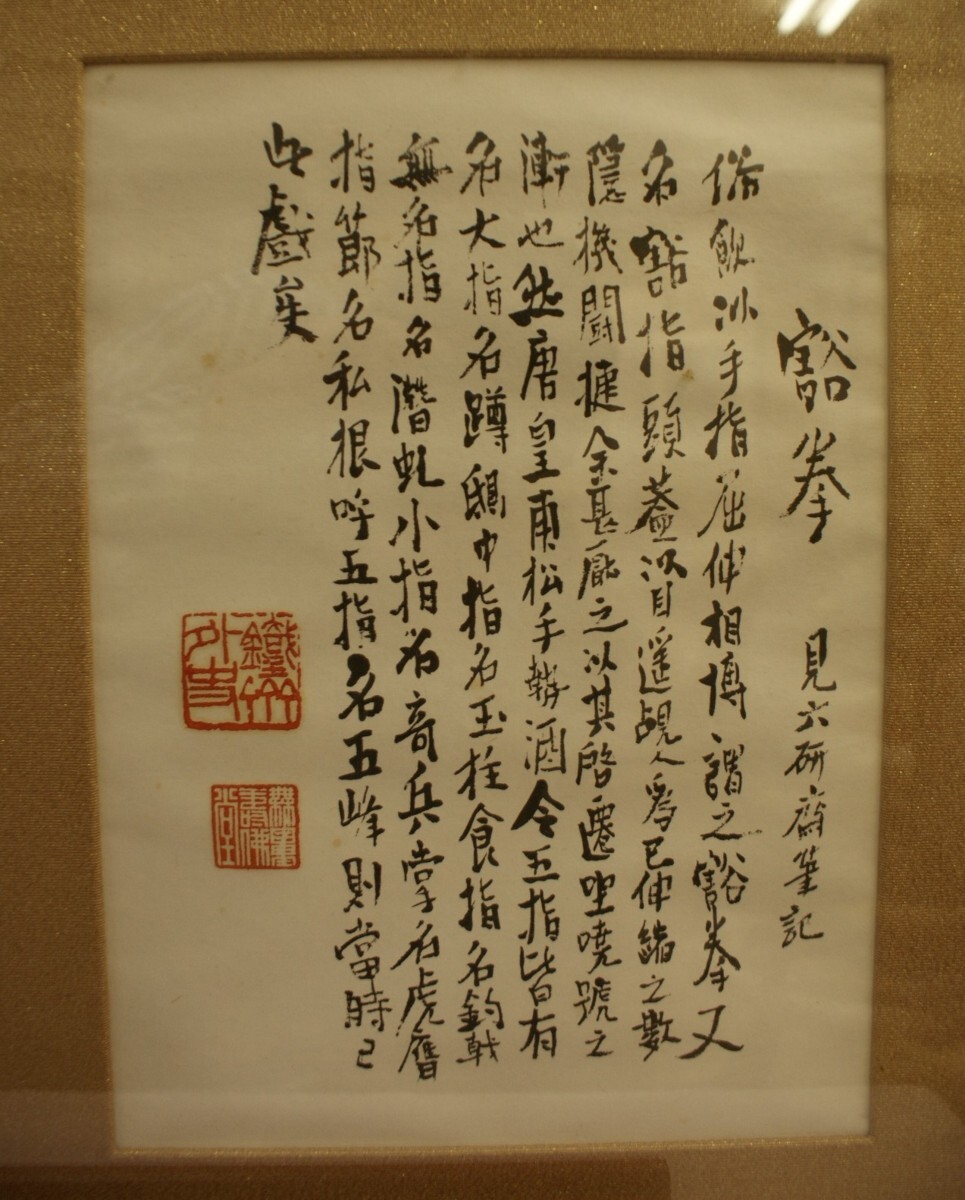 豁拳 見六研齋筆記
俗飲以手指屈伸相博謂之豁拳又
名豁指頭蓋以目遥覘人爲己伸縮之數
隱機鬬捷余甚厭之以其啓遷坐嘵號之
漸也然唐皇甫松手勢酒令五指皆有
名大指名蹲鴟中指名玉柱食指名鉤戟
無名指名潛虬小指名奇兵掌名虎膺
指節名私根呼五指名五峰則當時已
此戲矣
鐵
外史
無量
壽佛
堂